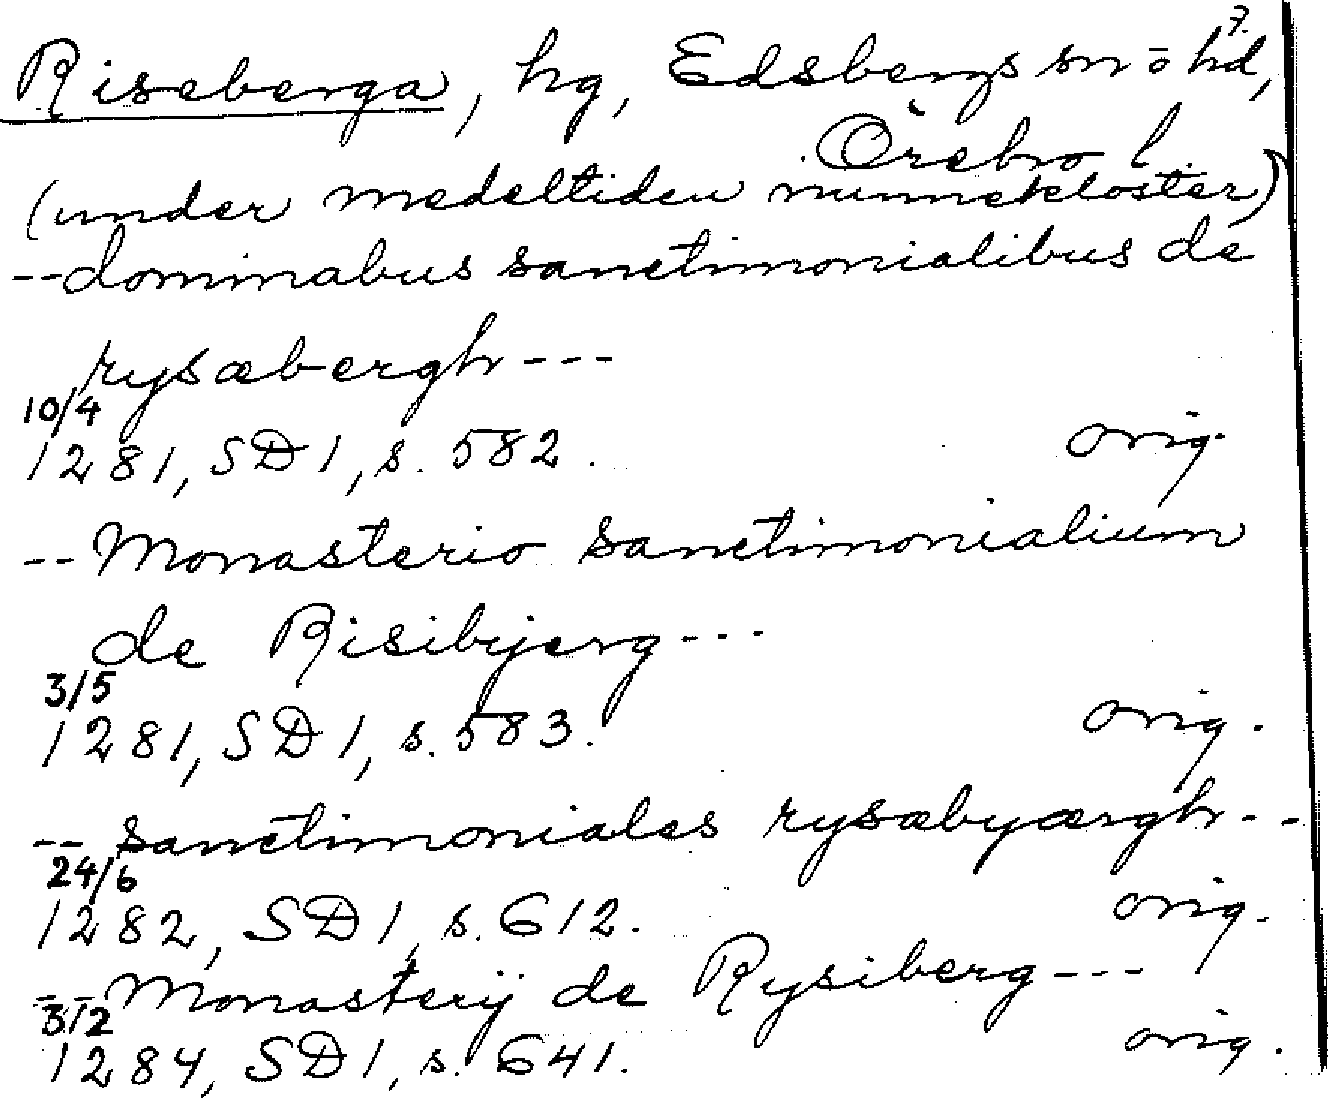 7.
Riseberga, hg, Edsbergs sn o hd,
Örebro l.
(under medeltiden nunnekloster)
--dominabus sanctimonialibus de
rysæbergh---
10/4
1281, SD1, s. 582. orig.
--Monasterio sanctimonialium
de Risibyerg---
3/5
1281, SD1, s. 583. orig.
-- sanctimoniales rysæbyærgh--
24/6
1282, SD1, s. 612. orig.
--Monasterij de Rysiberg---
3/2
1284, SD1, s. 641. orig.